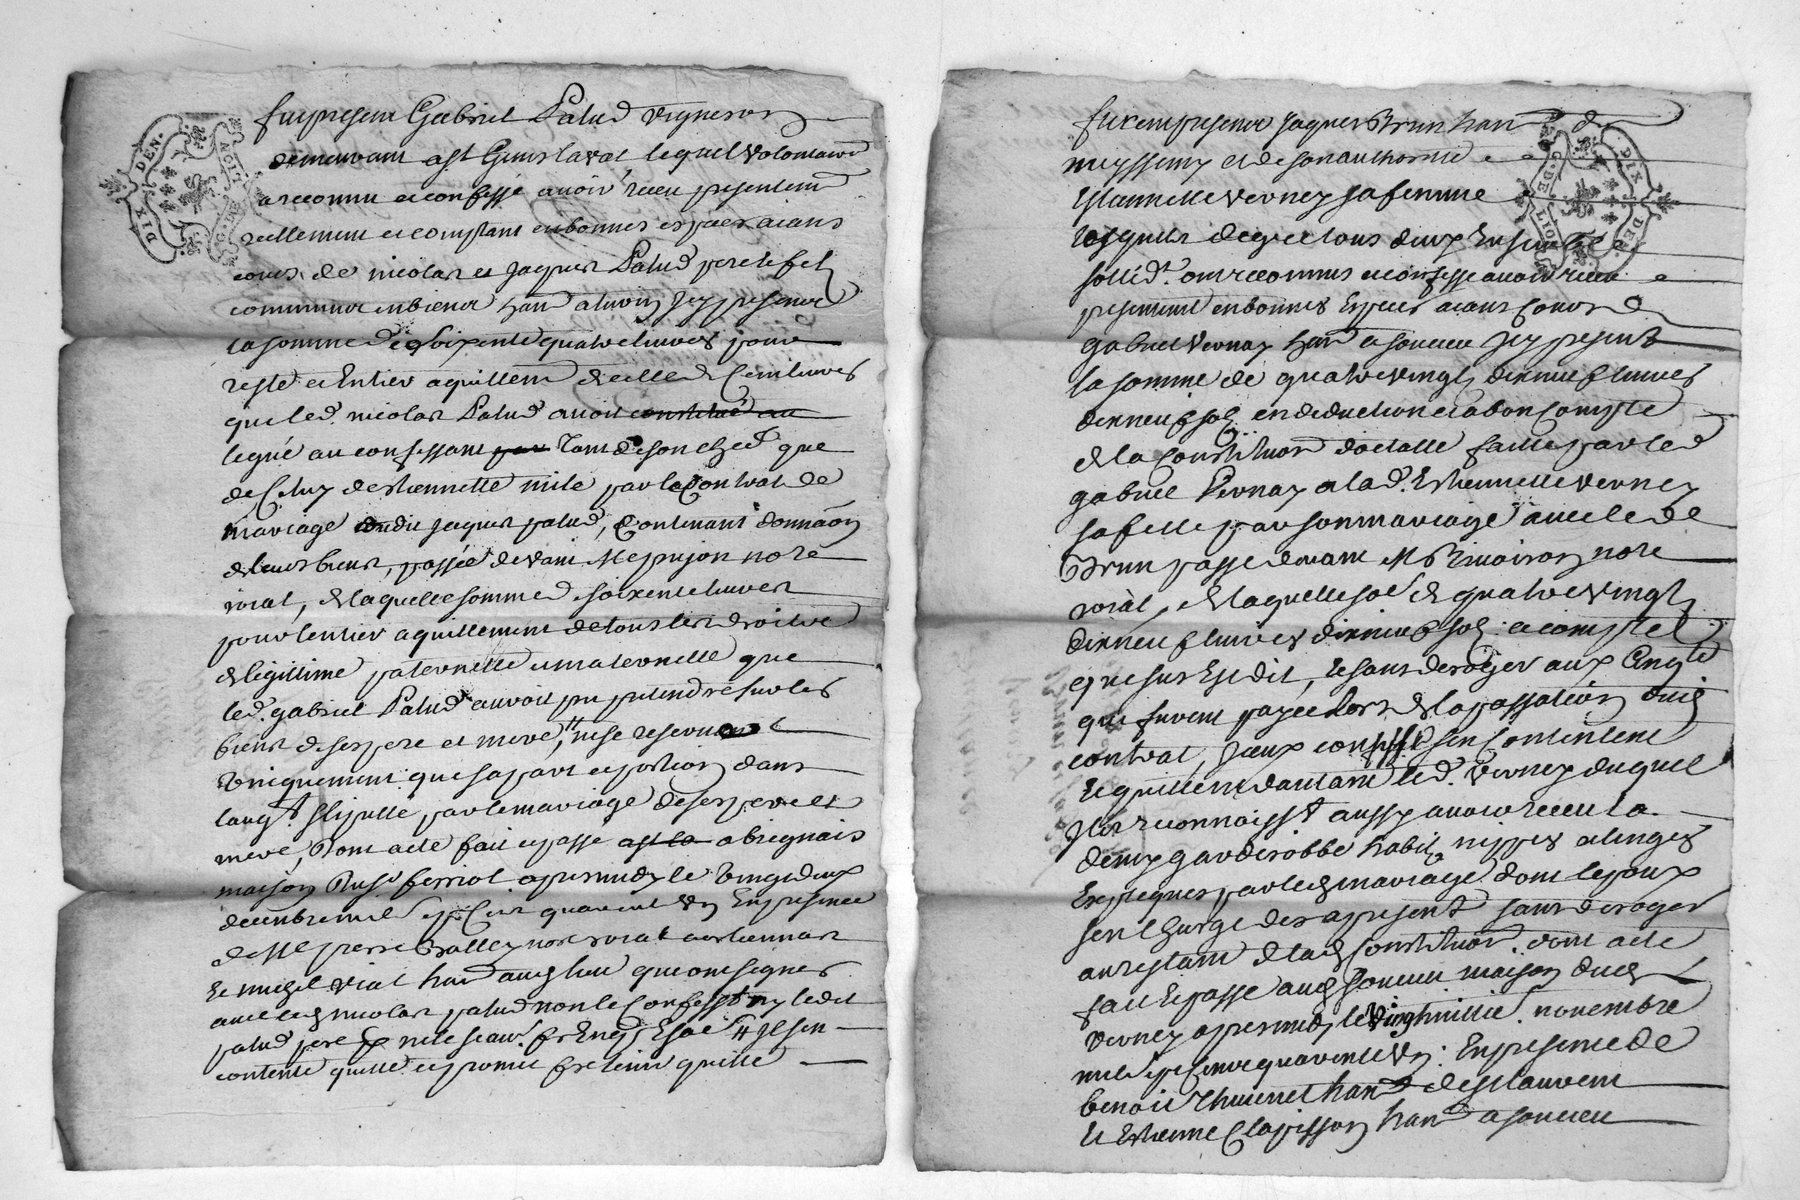 DIX DEN.
G. DE LION
ACTE
fut present Gabriel Palud vigneron
demeurant a St Genis laval lequel volontaire
a reconnu et confessé avoir receu presentem
reellement et comptant en bonnes especes aians
cours de nicolas et Jaques Palud pere et fils
communs en biens han a Icy presence
la somme de soixente quatre livres pour
reste et Entier aquittem de celle de Cent livres
que led. nicolas Palud avoit constitué au
legué au confessant par Tant de son chef que
de Celuy de Etiennette mile par le Contrat de
mariage dudit Jaques palud, Contenant donnaon
de leurs biens, passée devant Me pujon nore
roial, de laquelle somme de soixente livres
pour l entier aquittement de tous les droits
de legittime paternelle et maternelle que
led. gabriel Palud auroit pu pretendre sur les
biens de ses pere et mere, ne se reservant
Uniquement que sa part et portion dans
laugt. stipulté par le mariage de ses pere et
mere, Dont acte fait et passe a St La a brignais
maison ferriol apres midy le Vingt deux
decembre mil sept Cent quarente Un En presence
de Me pierre nore roial et Etiennas
Et vial han audt lieu qui ont signes
avec led nicolas palud non le Confesst ny ledit
palud pere pr ne le scavr. fe Enqs Esté Il s en
contente quitte et promet fe tenir quitte
DIX DEN.
G. DE LION
furent presence Jaques Brun han de
meyssimy et de son authorité
Etiennette Verney sa femme
lesquels de gre et tous deux Ensemble
sollidt. ont reconnus et confesse avoir receu
presentemt en bonnes Especes aians Cours de
gabriel Verney han a soucieu Icy present
la somme de quatre vingts dixneuf livres
dixneuf sols en deduction et a bon Compte
de la Constitution dotalle faitte par led
gabriel Vernay a lad. Etiennette Verney
sa fille par son mariage avec led
Brun passe devant Me nore
roial, de laquelle soe de quatre vingts
dixneuf livres dixneuf sols a compte
que sus Est dit, Et sans deroger aux
que furent payee Lors de la passation dud
contrat, Iceux confesse s en Contentent
Et quittent d autant led. Verney duquel
Ils reconnaisst aussy avoir receu la
garderobbe habits, nippes et linges
Expeques par led mariage dont lepoux
s en Charge des a present sans deroger
au restant de lad Constitution. dont acte
fait Et passe aud soucieu maison dud
Verney apres midy le Vingt huittie. novembre
mil sept Cents quarente Un. En presence de
benoit Thuenet han de St laurent
Et Etienne Clapisson han a soucieu